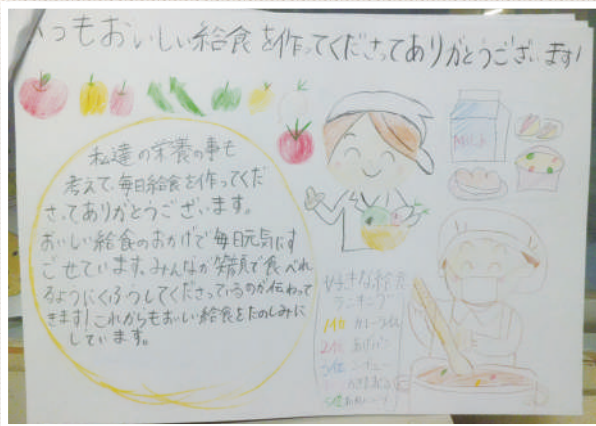 いつもおいしい給食を作ってくださってありがとうございます!
私達の栄養の事も
考えて、毎日給食を作ってくだ
さってありがとうございます。
おいしい給食のおかげで毎日元気にす
ごせています。みんなが笑顔で食べれ
るようにくふうしてくださっているのが伝わって
きます!これからもおいしい給食をたのしみに
しています。
Milk
好きな給食
ランキング
1位 カレーライス
2位 あげパン
3位 シチュー
5位